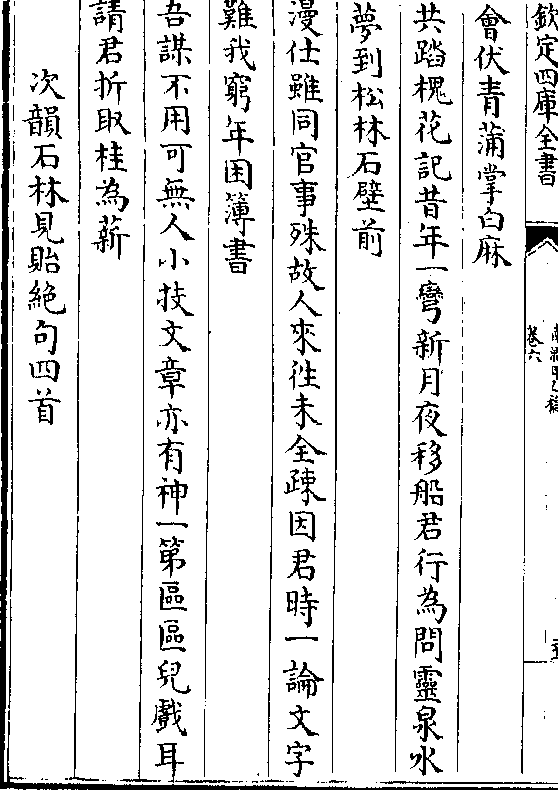 欽定四庫全書
卷六
會伏青蒲掌白麻
共踏槐花記昔年一彎新月夜移船君行為問靈泉水
夢到松林石壁前
漫仕雖同官事殊故人來徃未全疎因君時一論文字
難我窮年困簿書
吾謀不用可無人小技文章亦有神一第區區兒戲耳
請君折取桂為薪
次韻石林見貽絶句四首